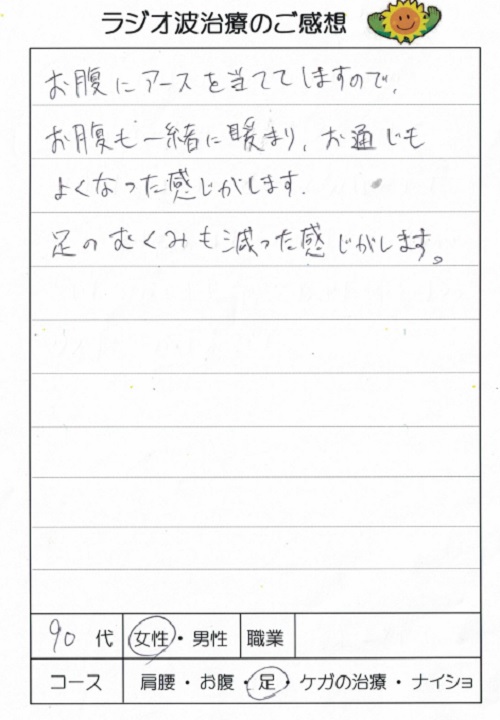 ラジオ波治療のご感想
お腹にアースを当ててしますので、
お腹も一緒に暖まり、お通じも
よくなった感じがします.
足のむくみも減った感じがします。
90 代 女性・男性 職業
コース 肩腰・お腹・足・ケガの治療・ナイショ